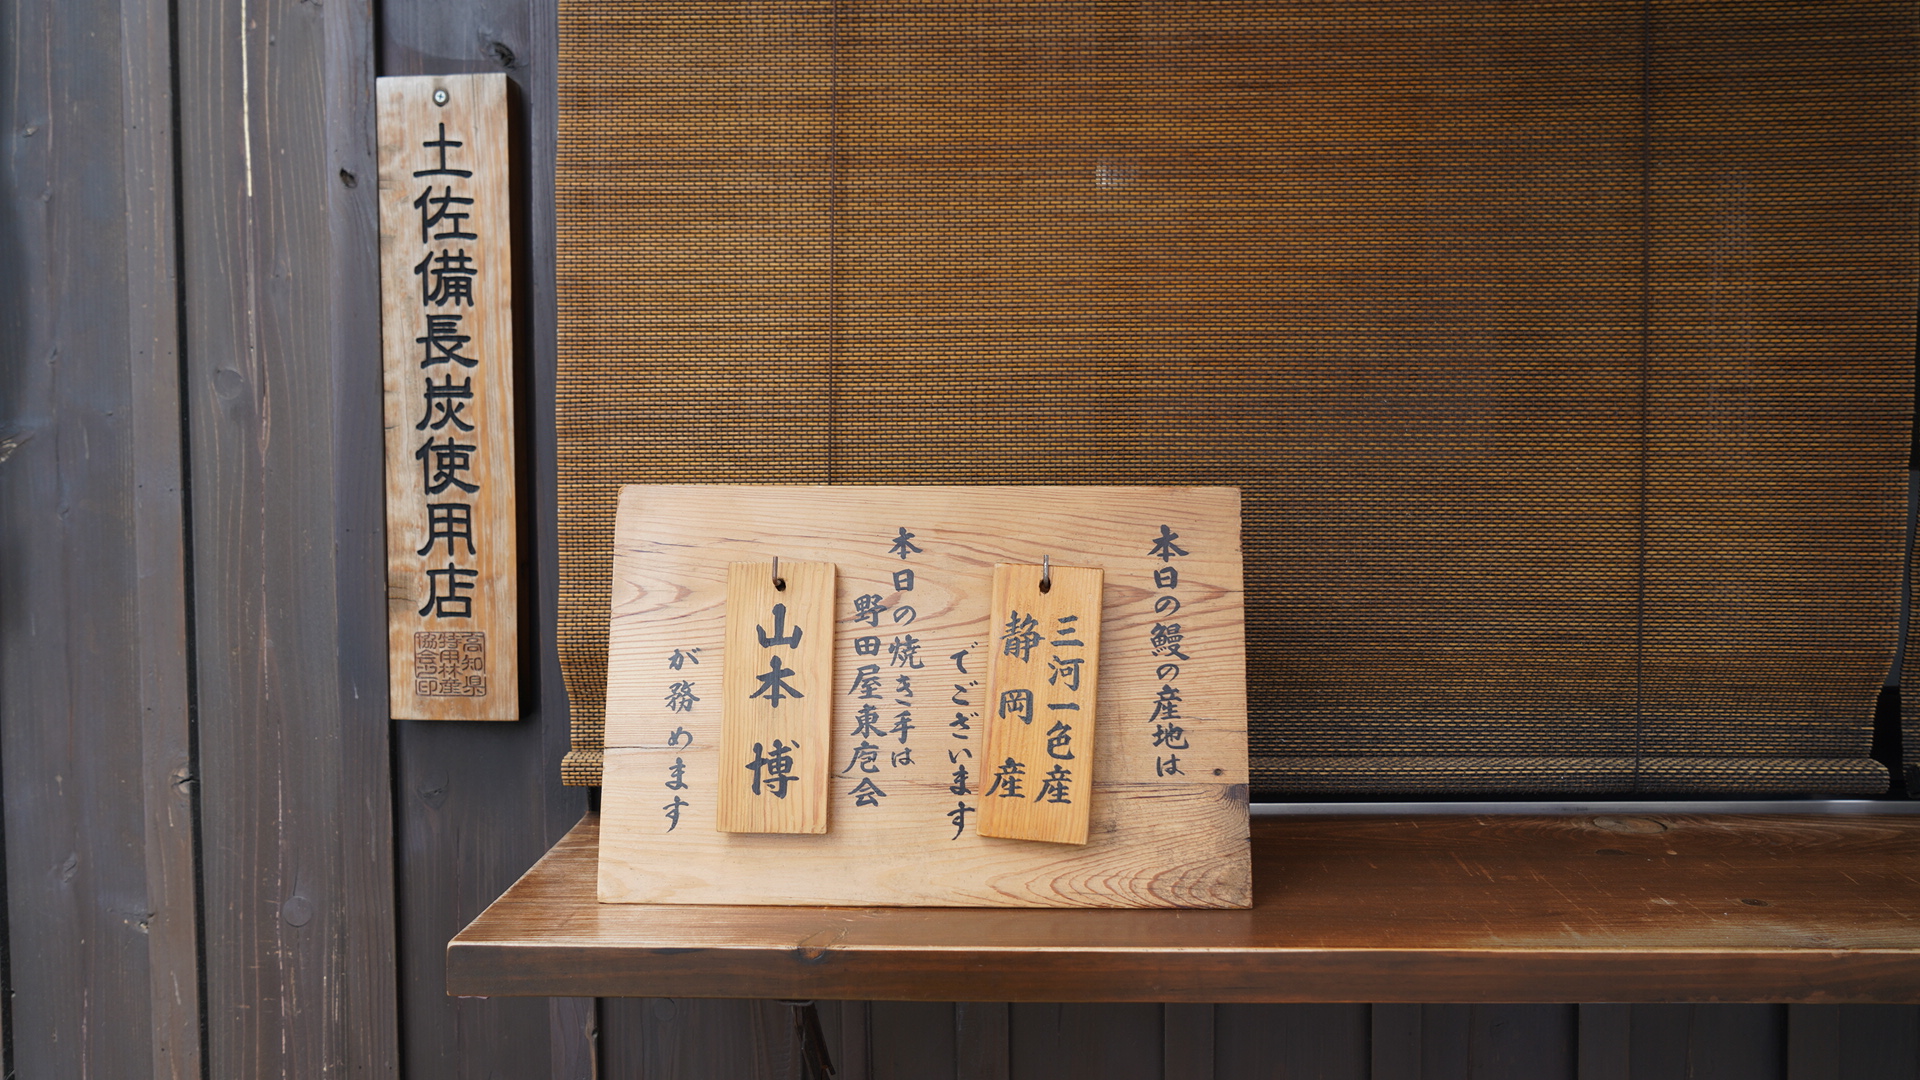 土佐備長炭使用店
高知県
特用林産
協会之印
本日の鰻の産地は
三河一色産
静岡産
でございます
本日の焼き手は
野田屋東庖会
山本博
が務めます